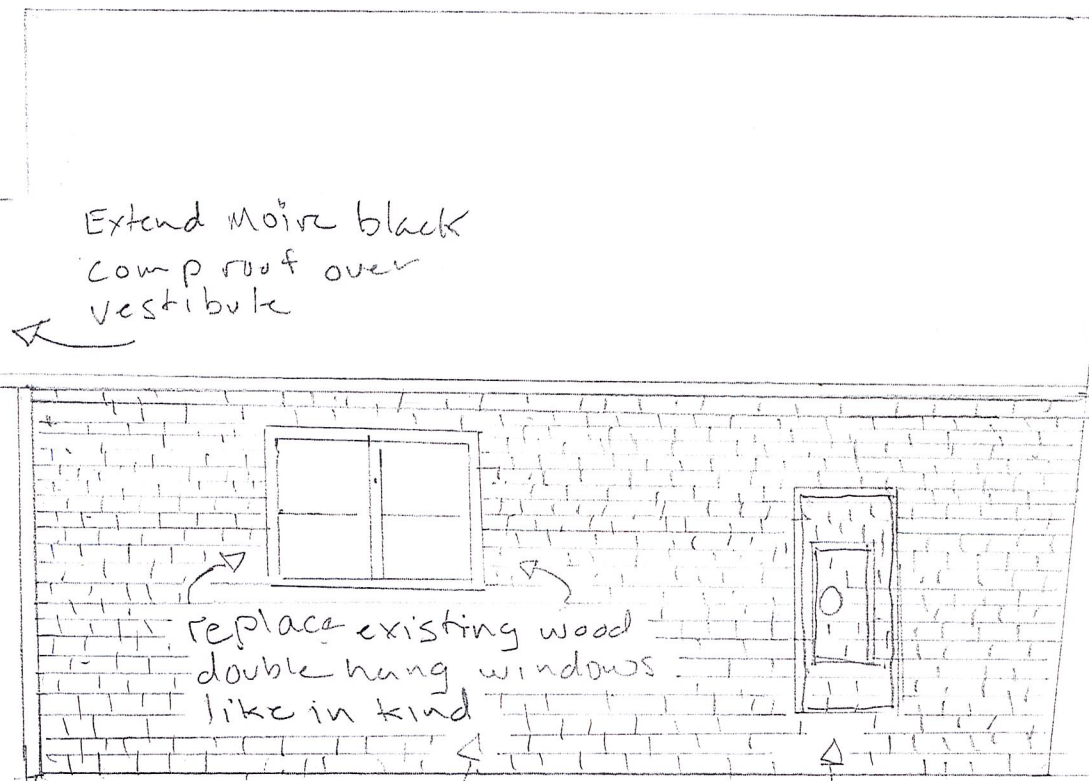 Extend Moire black
comp roof over
vestibule
replace existing wood
double hung windows
like in kind